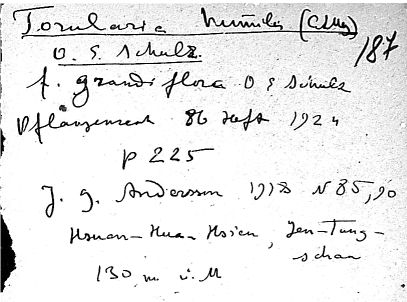 Torularia humilis (CAMey)
O. E. Schulz.
187
f. grandiflora O E Schulz
Pflanzenreich 86 Heft 1924
p 225
J. G. Andersson 1918 N 85, 90
Hsuan-Hua-Hsien, Jen-Tung-
schan
130 m ü. M